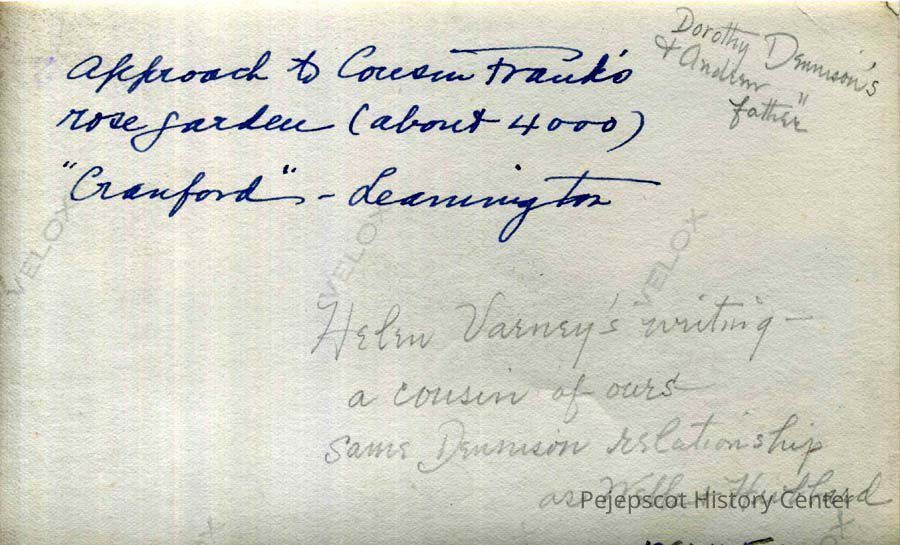 Approach to Cousin Frank's
rose garden (about 4000)
"Cranford" - Leamington
Dorothy Dennison's
& Andrew
father"
VELOX
VELOX
VELOX
Helen Varney's writing -
a cousin of ours
same Dennison relationship
as
Pejepscot History Center